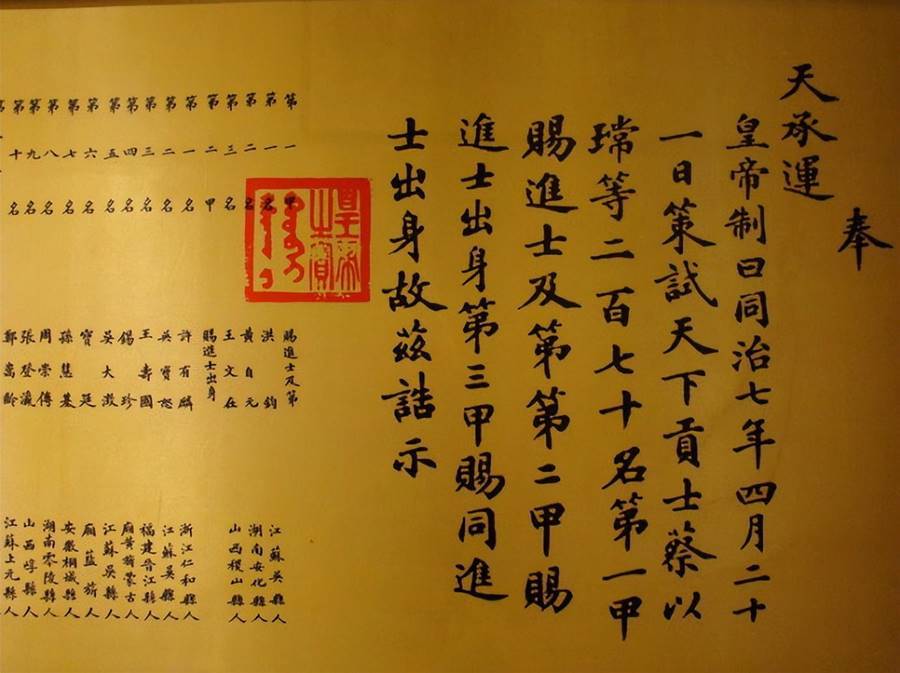 奉
天承運
皇帝制曰同治七年四月二十
一日策試天下貢士蔡以
瑺等二百七十名第一甲
賜進士及第第二甲賜
進士出身第三甲賜同進
士出身故茲誥示
皇帝之寶
第一甲 賜進士及第
第一名 洪鈞 江蘇吳縣人
第二名 黃自元 湖南安化縣人
第三名 王文在 山西稷山縣人
第二甲 賜進士出身
第一名 許有麟 浙江仁和縣人
第二名 吳寶恕 江蘇吳縣人
第三名 王壽國 福建晉江縣人
第四名 錫珍 廂黃旂蒙古人
第五名 吳大澂 江蘇吳縣人
第六名 寶廷 廂藍旂人
第七名 孫慧基 安徽桐城縣人
第八名 周崇傅 湖南零陵縣人
第九名 張登瀛 山西崞縣人
第十名 鄭嵩齡 江蘇上元縣人